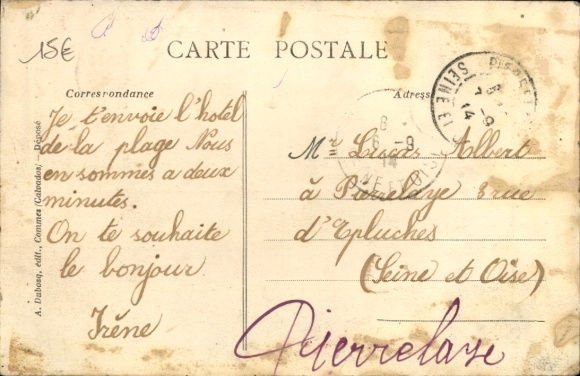 15€
CARTE POSTALE
Correspondance
Adresse
Je t'envoie l'hotel
de la plage Nous
en sommes a deux
minutes.
On te souhaite
le bonjour
Irène
A. Dubosq, édit., Commes (Calvados) — Déposé
Mr Lucas Albert
à Parrelaye 8 rue
d'Epluches
(Seine et Oise)
Pierrelaye
SEINE ET
7 -9
14
6
6 -9
14